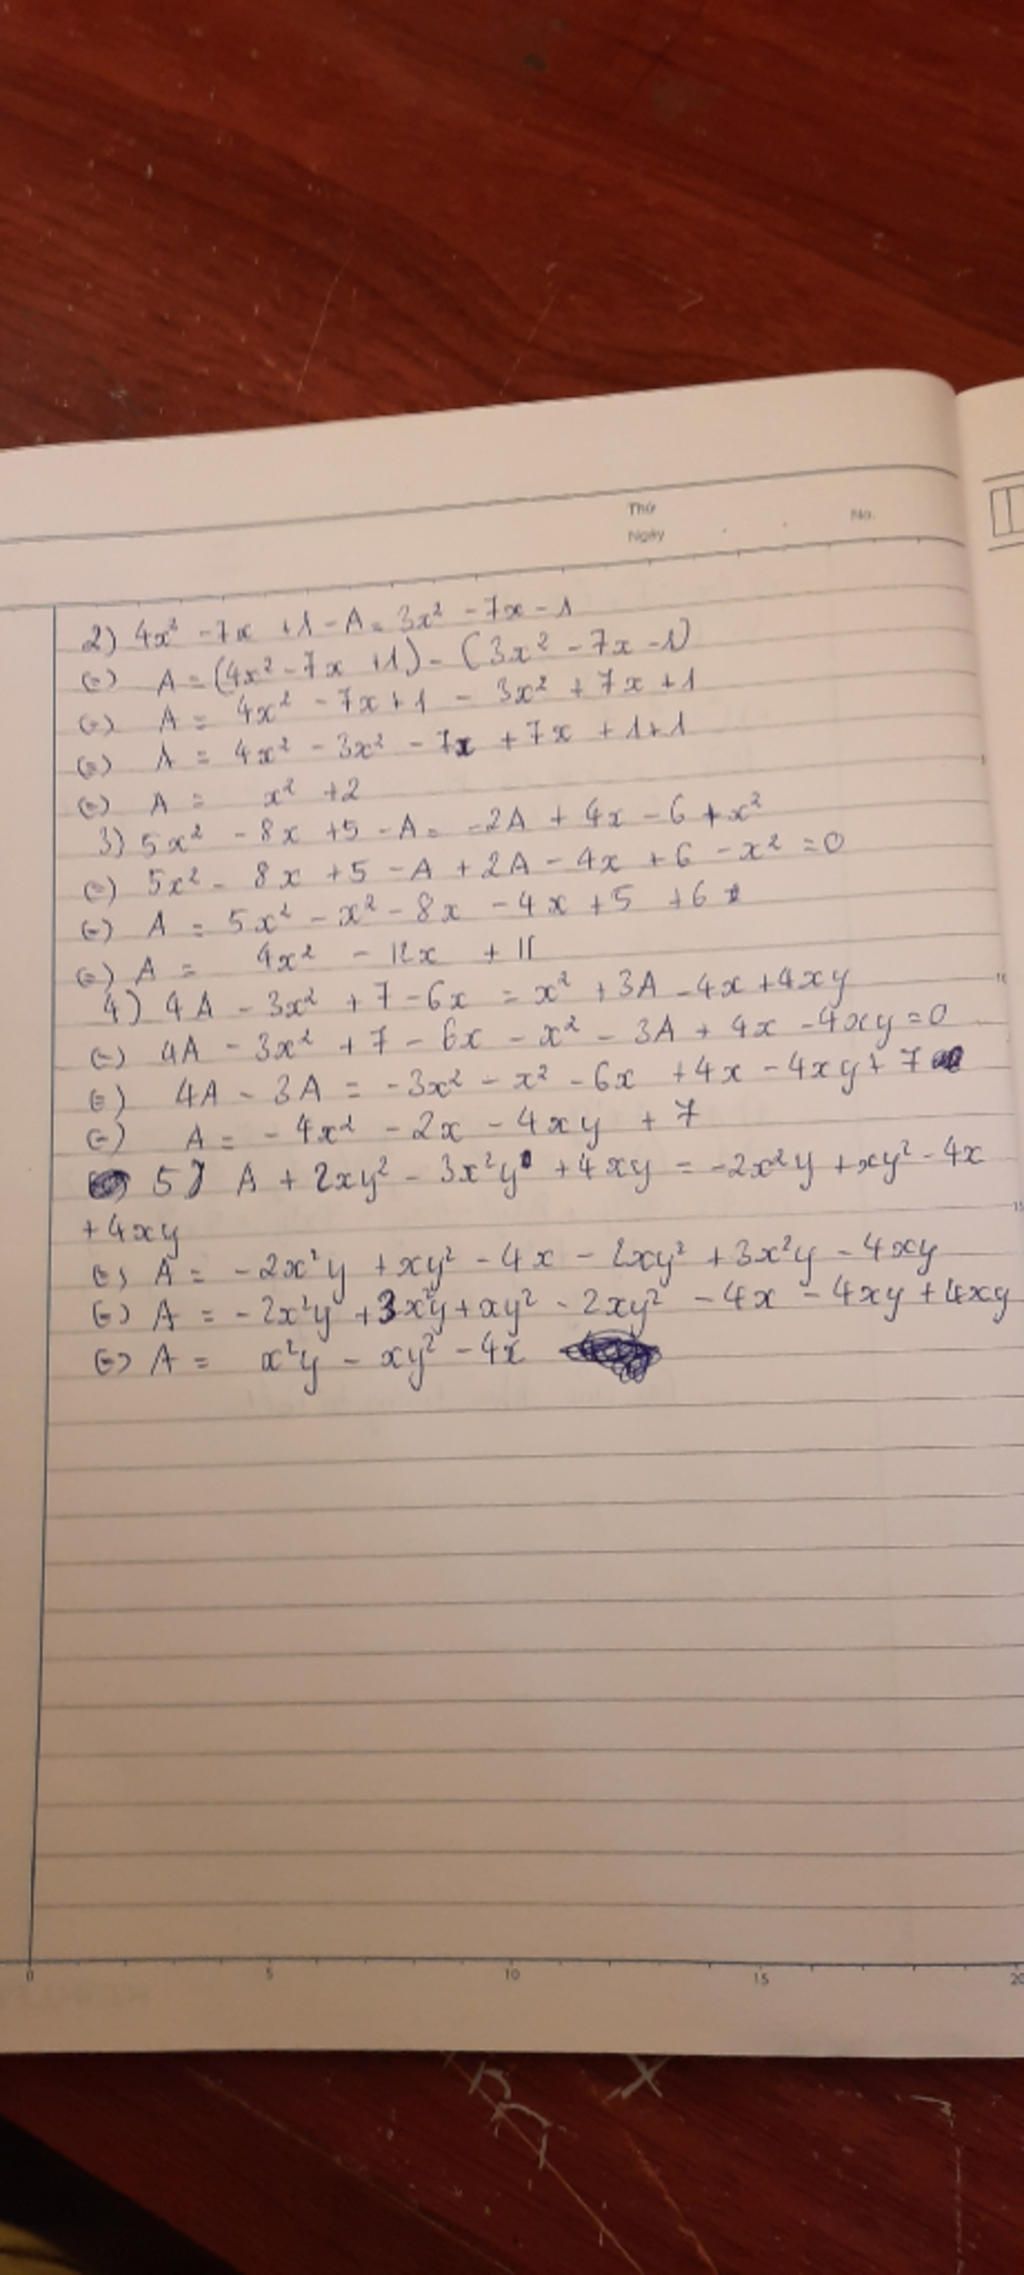 Thứ
Ngày
No.
2) 4x² - 7x + 1 - A = 3x² - 7x - 1
(=) A = (4x² - 7x + 1) - (3x² - 7x - 1)
(=) A = 4x² - 7x + 1 - 3x² + 7x + 1
(=) A = 4x² - 3x² - 7x + 7x + 1 + 1
(=) A = x² + 2
3) 5x² - 8x + 5 - A = -2A + 4x - 6 + x²
(=) 5x² - 8x + 5 - A + 2A - 4x + 6 - x² = 0
(=) A = 5x² - x² - 8x - 4x + 5 + 6
(=) A = 4x² - 12x + 11
4) 4A - 3x² + 7 - 6x = x² + 3A - 4x + 4xy
(=) 4A - 3x² + 7 - 6x - x² - 3A + 4x - 4xy = 0
(=) 4A - 3A = -3x² - x² - 6x + 4x - 4xy + 7
(=) A = -4x² - 2x - 4xy + 7
5) A + 2xy² - 3x²y + 4xy = -2x²y + xy² - 4x
+ 4xy
(=) A = -2x²y + xy² - 4x - 2xy² + 3x²y - 4xy
(=) A = -2x²y + 3x²y + xy² - 2xy² - 4x - 4xy + 4xy
(=) A = x²y - xy² - 4x
0 5 10 15 20